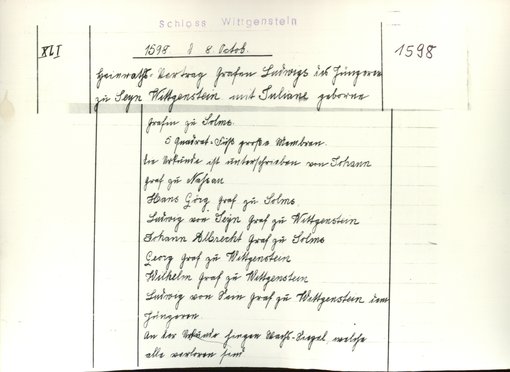 Schloss Wittgenstein
XLI
1598 d 8. Octob.
1598
Heiraths-Vertrag Grafen Ludwigs des Jüngeren
zu Seyn Wittgenstein mit Juliane geborne
Gräfin zu Solms.
5 Quadrat-Fuß große Membran.
Die Urkunde ist unterschrieben von Johann
Graf zu Nassau
Hans Görg Graf zu Solms
Ludwig von Seyn Graf zu Wittgenstein
Johann Albrecht Graf zu Solms
Georg Graf zu Wittgenstein
Wilhelm Graf zu Wittgenstein
Ludwig von Sein Graf zu Wittgenstein dem
Jüngeren.
An der Urkunde hingen Wachs-Siegel welche
alle verloren sind